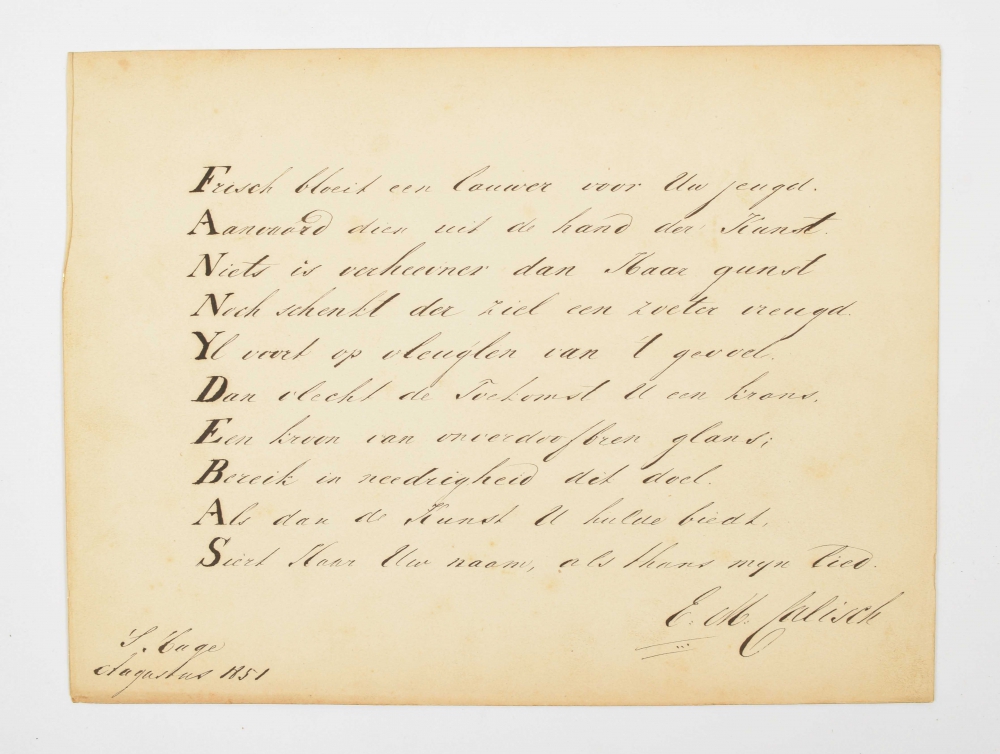 Frisch bloeit een lauwer voor Uw jeugd.
Aanvaard dien uit de hand der Kunst.
Niets is verheevner dan Haar gunst
Noch schenkt der ziel een zoeter vreugd.
Yl voort op vleuglen van 't gevoel.
Dan vlecht de Toekomst U een krans,
Een kroon van onverdoofbren glans;
Bereik in needrigheid dit doel.
Als dan de Kunst U hulde biedt,
Siert Haar Uw naam, als thans myn Lied.
E. M. Calisch
S. Hage
Augustus 1851